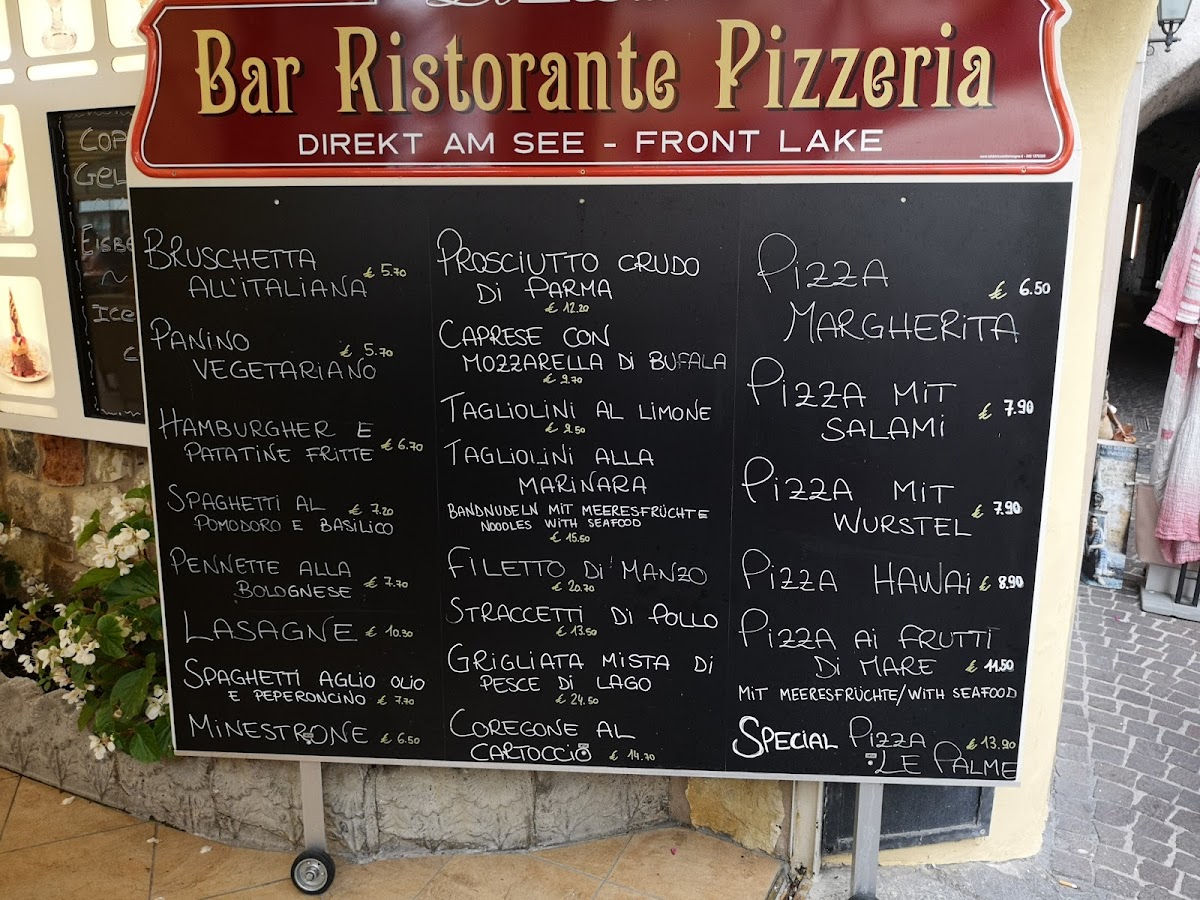 Bar Ristorante Pizzeria
DIREKT AM SEE - FRONT LAKE
BRUSCHETTA
ALL'ITALIANA € 5.70
PANINO
VEGETARIANO € 5.70
HAMBURGHER E
PATATINE FRITTE € 6.70
SPAGHETTI AL € 7.20
POMODORO E BASILICO
PENNETTE ALLA
BOLOGNESE € 7.70
LASAGNE € 10.30
SPAGHETTI AGLIO OLIO
E PEPERONCINO € 7.70
MINESTRONE € 6.50
PROSCIUTTO CRUDO
DI PARMA
€ 12.20
CAPRESE CON
MOZZARELLA DI BUFALA
€ 9.70
TAGLIOLINI AL LIMONE
€ 9.50
TAGLIOLINI ALLA
MARINARA
BANDNUDELN MIT MEERESFRÜCHTE
NOODLES WITH SEAFOOD
€ 15.50
FILETTO DI MANZO
€ 20.70
STRACCETTI DI POLLO
€ 13.50
GRIGLIATA MISTA DI
PESCE DI LAGO
€ 24.50
COREGONE AL
CARTOCCIO € 14.70
PIZZA
€ 6.50
MARGHERITA
PIZZA MIT
SALAMI € 7.90
PIZZA MIT
WURSTEL € 7.90
PIZZA HAWAI € 8.90
PIZZA AI FRUTTI
DI MARE € 11.50
MIT MEERESFRÜCHTE/WITH SEAFOOD
SPECIAL PIZZA € 13.90
LE PALME
COP
GEL
EISBE
ICE
C